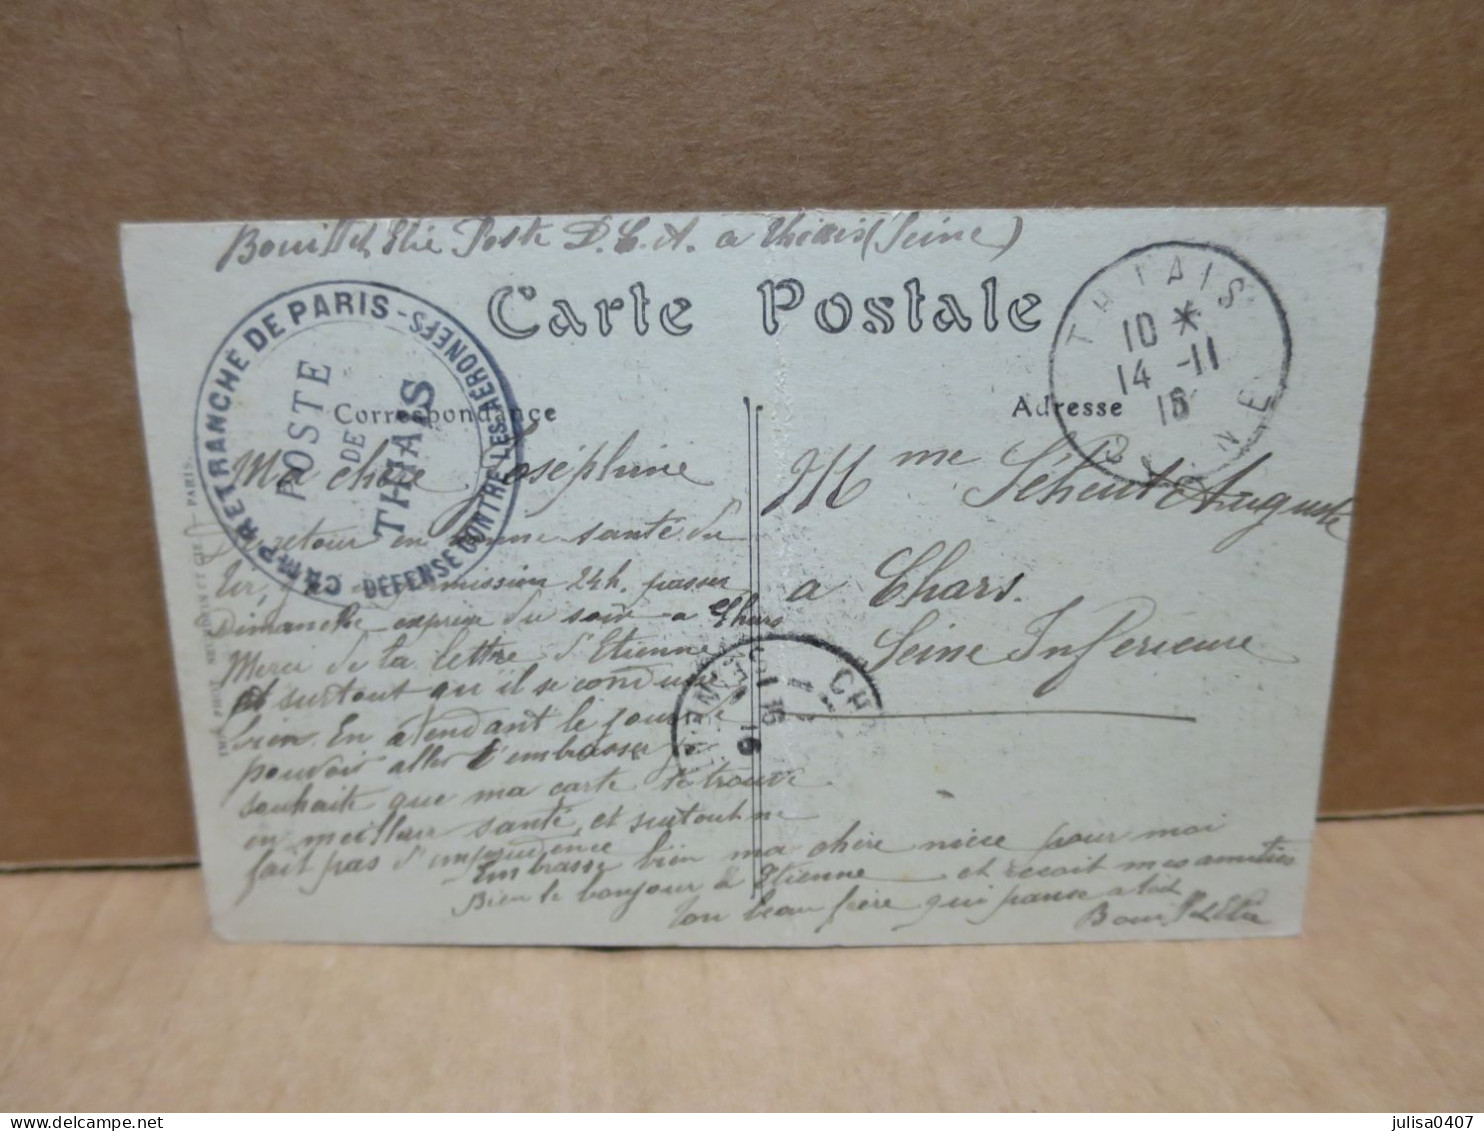 Bouillet Elie Poste D.C.A. a Thiais (Seine)
Carte Postale
CAMP RETRANCHE DE PARIS - DEFENSE CONTRE LES AERONEFS
POSTE
DE
THIAIS
THIAIS
10 *
14 -11
16
SEINE
Correspondance
Adresse
Ma chère Joséphine
retour en bonne santé du
permission 24h. passer
Dimanche exprex du soir a Chars
Merci de la lettre d'Etienne
et surtout qu'il se conduise
bien. En atendant le jour
pouvoir aller t'embrasser
souhaite que ma carte te trouve
en meilleur santé, et surtout ne
fait pas d'imprudence
Embrasse bien ma chère niece pour moi
Bien le bonjour a Etienne et recoit mes amitiés
Ton beau frère qui panse a toit
Bouillet Elie
Mme Auguste
a Chars.
Seine Inferieure
IMP. PHOT. NEURDEIN ET CIE - PARIS.
julisa0407